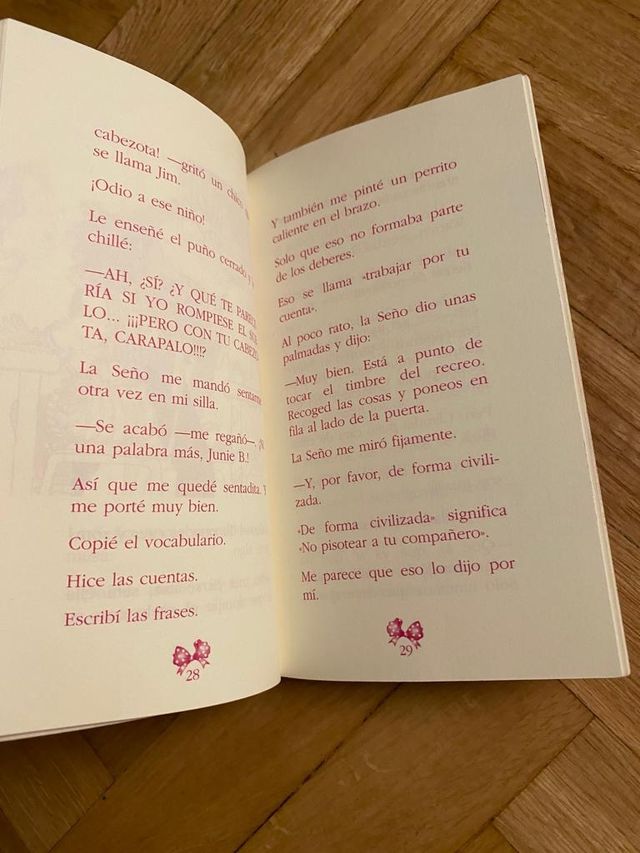 cabezota! —gritó un chico
se llama Jim.
¡Odio a ese niño!
Le enseñé el puño cerrado y
chillé:
—AH, ¿SÍ? ¿Y QUÉ TE PARECE
RÍA SI YO ROMPIESE EL
LO... ¡¡¡PERO CON TU CABEZO
TA, CARAPALO!!!?
La Seño me mandó sentarme
otra vez en mi silla.
—Se acabó —me regañó—
una palabra más, Junie B.!
Así que me quedé sentadita. Y
me porté muy bien.
Copié el vocabulario.
Hice las cuentas.
Escribí las frases.
28
Y también me pinté un perrito
caliente en el brazo.
Solo que eso no formaba parte
de los deberes.
Eso se llama «trabajar por tu
cuenta».
Al poco rato, la Seño dio unas
palmadas y dijo:
—Muy bien. Está a punto de
tocar el timbre del recreo.
Recoged las cosas y poneos en
fila al lado de la puerta.
La Seño me miró fijamente.
—Y, por favor, de forma civili-
zada.
«De forma civilizada» significa
«No pisotear a tu compañero».
Me parece que eso lo dijo por
mí.
29